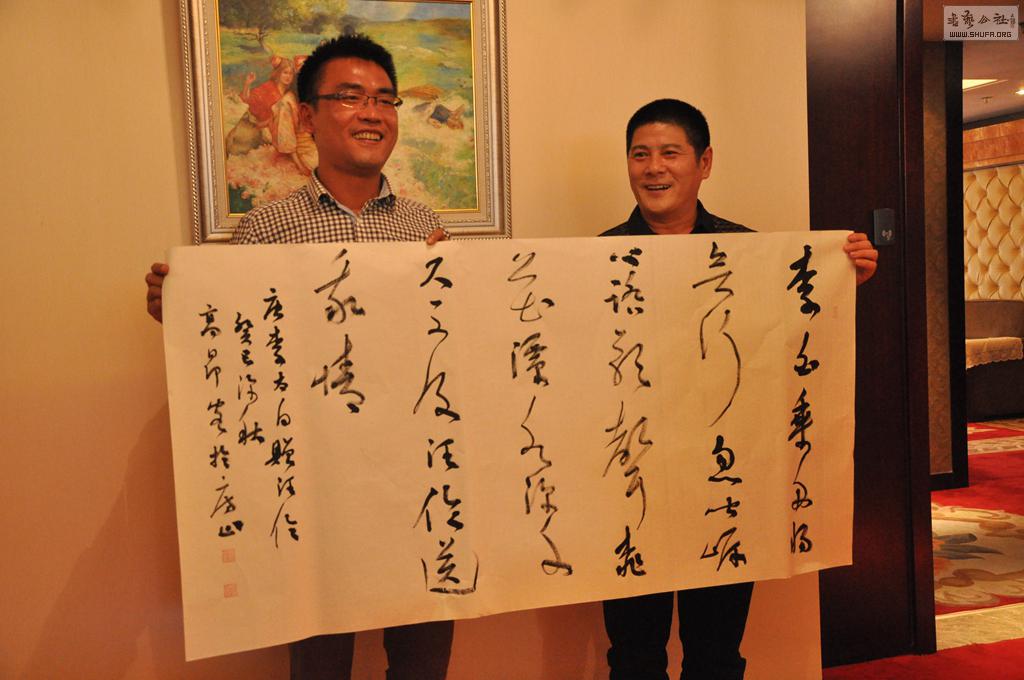 李白乘舟将
欲行忽闻岸
上踏歌聲桃
花潭水深千
尺不及汪伦送
我情
唐李太白赠汪伦
癸巳深秋
高昂书于房山
书艺公社
WWW.SHUFA.ORG